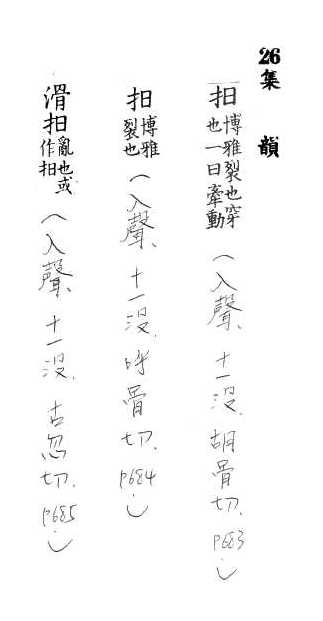 26集韻
抇博雅裂也穿也一曰牽動(入聲、十一沒.胡骨切.P683.)
抇博雅裂也(入聲、十一沒.呼骨切.P684.)
滑抇亂也或作抇(入聲、十一沒.古忽切.P685.)